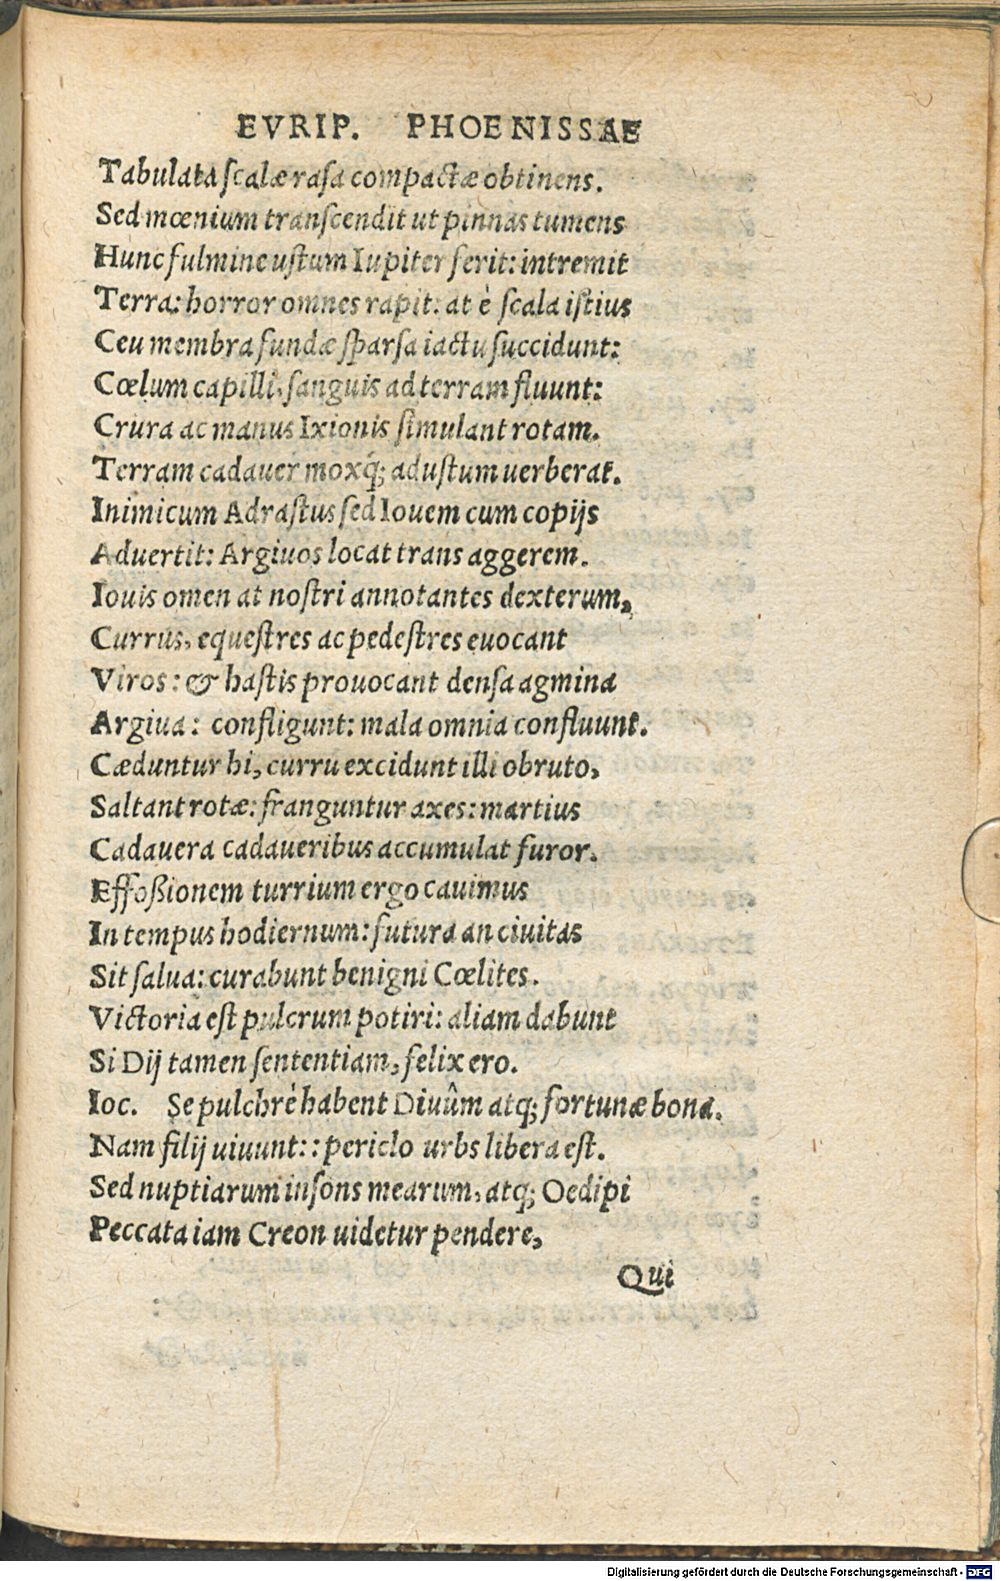 EVRIP. PHOENISSAE
Tabulata scalæ rasa compactæ obtinens.
Sed mœnium transcendit ut pinnas tumens
Hunc fulmine ustum Iupiter ferit: intremit
Terra: horror omnes rapit: at è scala istius
Ceu membra fundæ sparsa iactu succidunt:
Cœlum capilli, sanguis ad terram fluunt:
Crura ac manus Ixionis simulant rotam.
Terram cadauer moxq́; adustum uerberat.
Inimicum Adrastus sed Iouem cum copijs
Aduertit: Argiuos locat trans aggerem.
Iouis omen at nostri annotantes dexterum,
Currus, equestres ac pedestres euocant
Viros: & hastis prouocant densa agmina
Argiua: confligunt: mala omnia confluunt.
Cæduntur hi, curru excidunt illi obruto,
Saltant rotæ: franguntur axes: martius
Cadauera cadaueribus accumulat furor.
Effoßionem turrium ergo cauimus
In tempus hodiernum: futura an ciuitas
Sit salua: curabunt benigni Cœlites.
Victoria est pulcrum potiri: aliam dabunt
Si Dij tamen sententiam, felix ero.
Ioc. Se pulchrè habent Diuûm atq; fortunæ bona.
Nam filij uiuunt:: periclo urbs libera est.
Sed nuptiarum insons mearum, atq; Oedipi
Peccata iam Creon uidetur pendere,
Qui
Digitalisierung gefördert durch die Deutsche Forschungsgemeinschaft - DFG